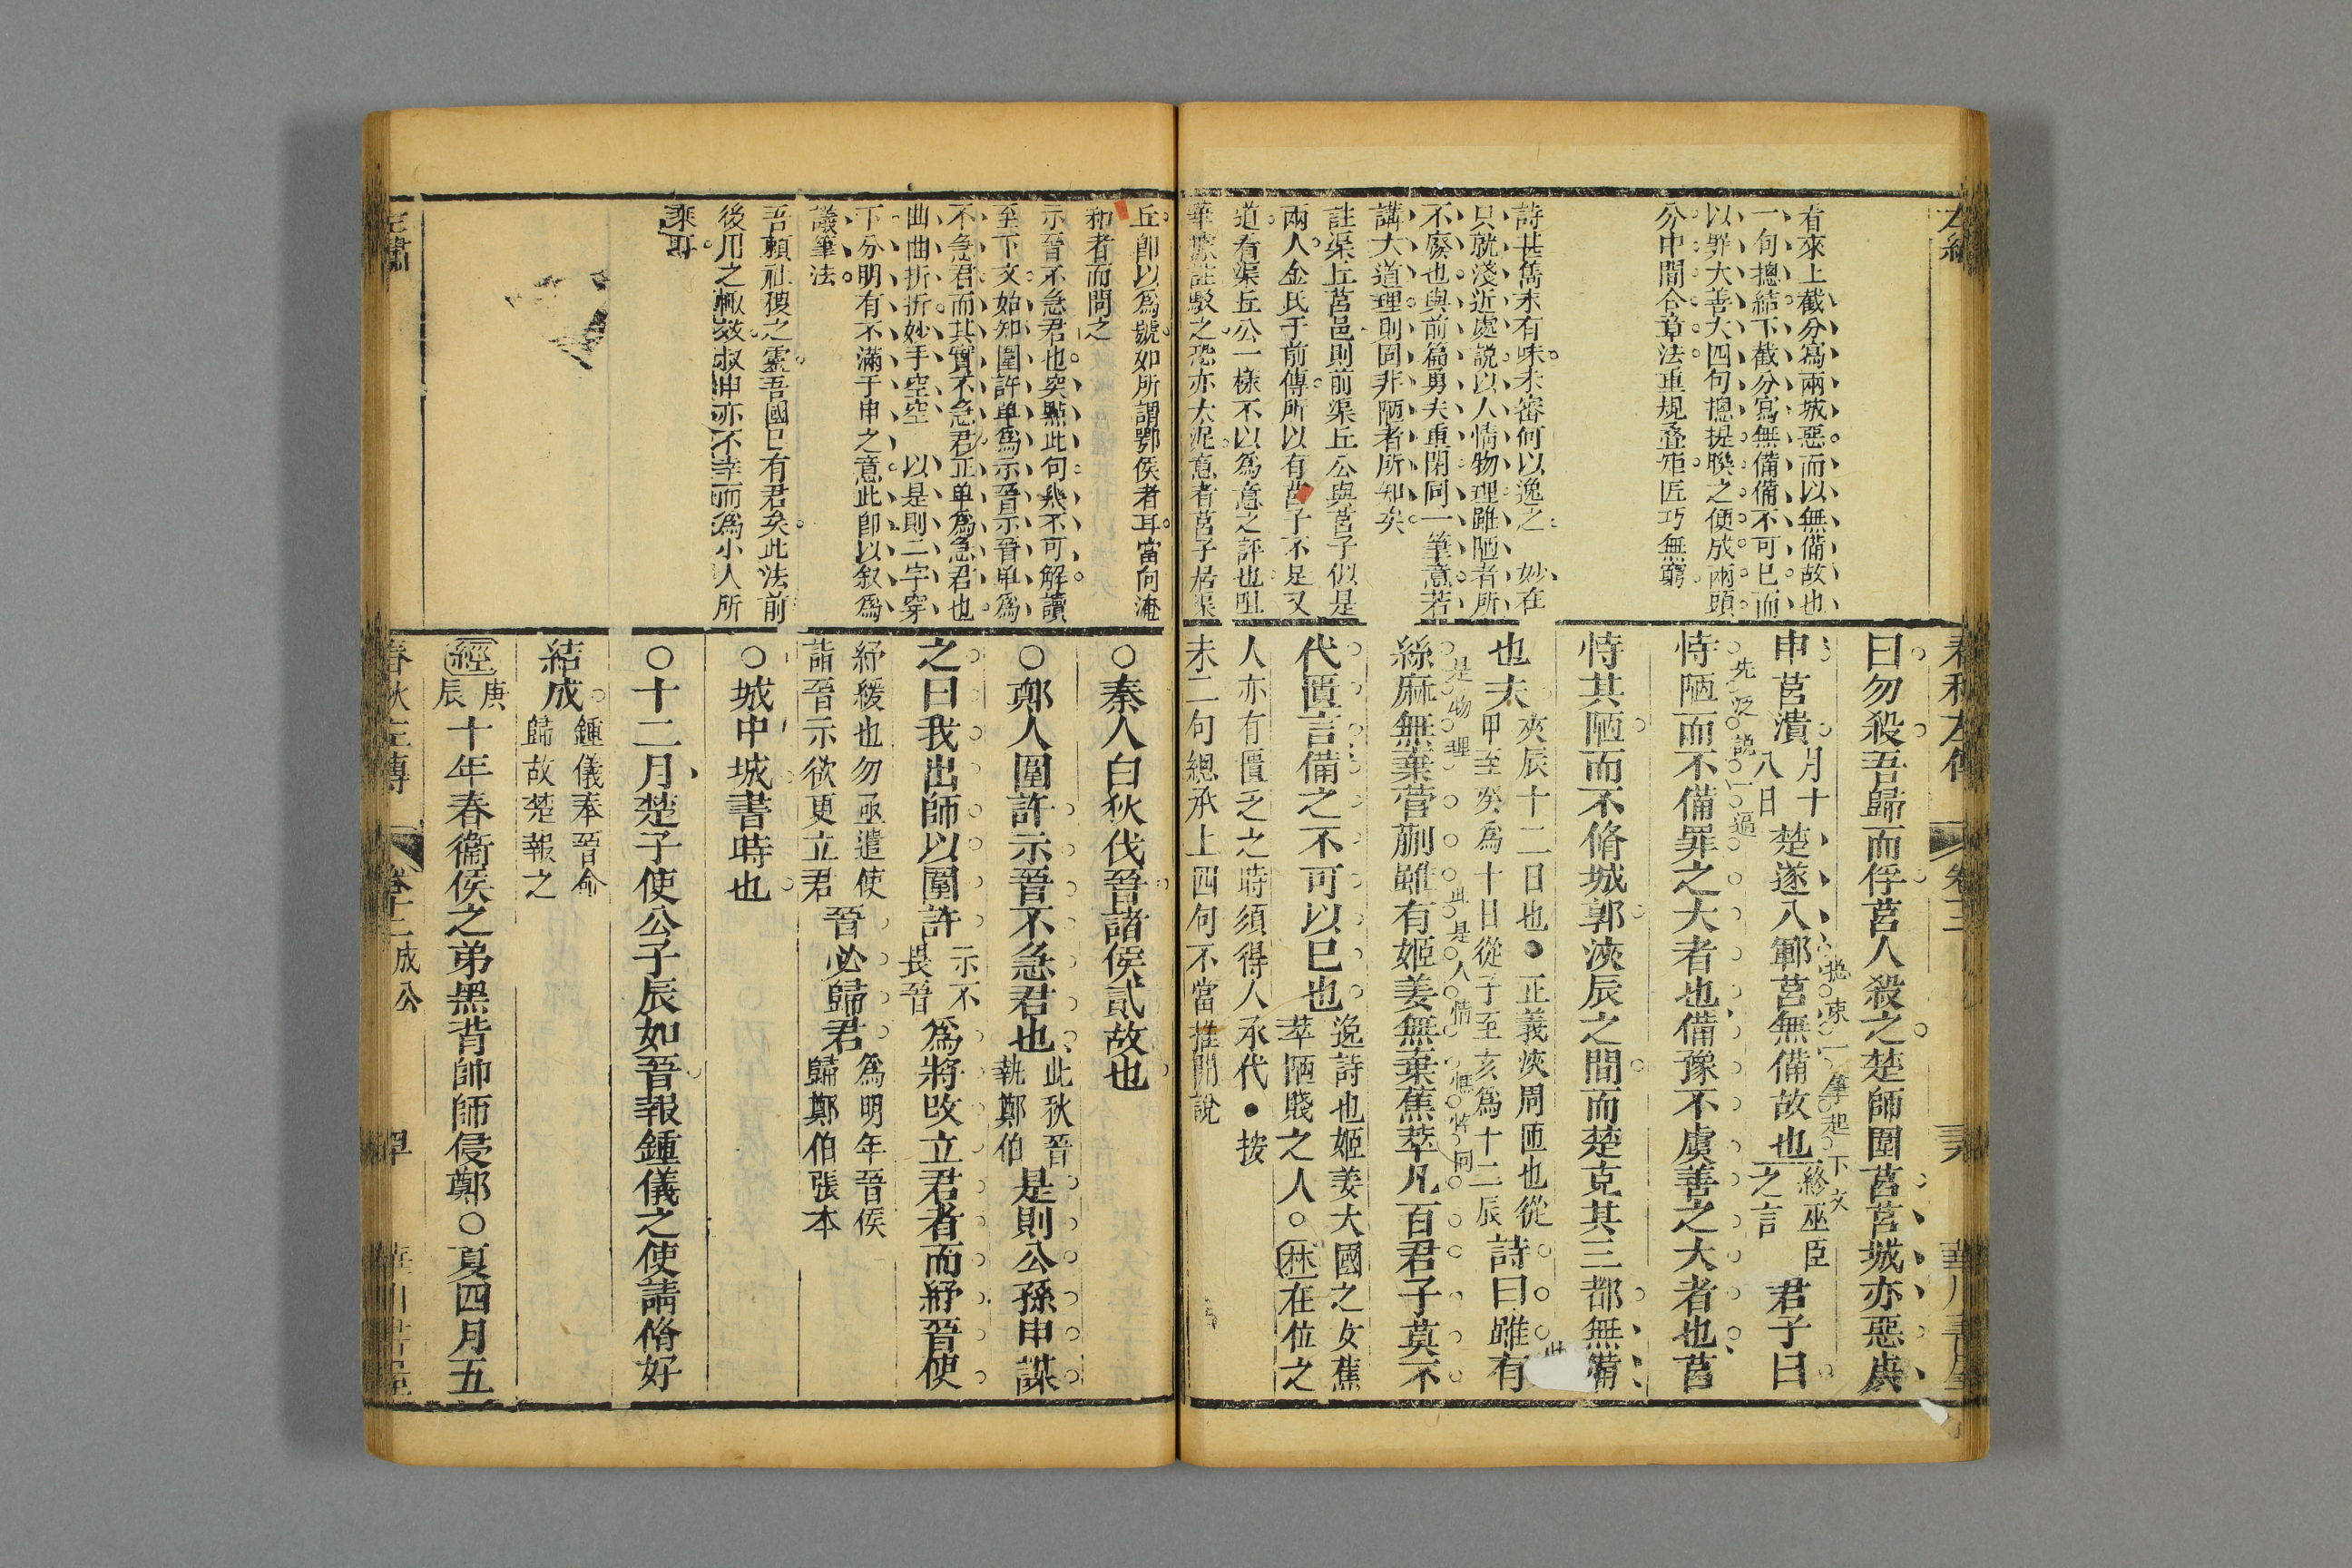 看來上截分寫兩城惡而以無備故也
一句揔結下截分寫無備備不可已而
以罪大善大四句揔提聯之便成兩頭
分中間合章法重規疊矩匠巧無窮
詩甚雋末有味未審何以逸之 妙在
只就淺近處說以人情物理雖陋者所
不廢也與前篇勇夫重閉同一筆意若
講大道理則固非陋者所知矣
註渠丘莒邑則前渠丘公與莒子似是
兩人金氏于前傳所以有莒子不是又
道有渠丘公一樣不以爲意之評也但
註駁之恐亦太泥意者莒子居渠
曰勿殺吾歸而俘莒人殺之楚師圍莒莒城亦惡庚
申莒潰
月十
八日
楚遂入鄆莒無備故也
終巫臣
之言
君子曰
恃陋而不備罪之大者也備豫不虞善之大者也莒
先泛說一遍
恃其陋而不脩城郭浹辰之間而楚克其三都無備
也夫
浹辰十二日也●正義浹周匝也從
甲至癸爲十日從子至亥爲十二辰
詩曰雖有
是物理
此是人情
絲麻無棄菅蒯雖有姬姜無棄蕉萃凡百君子莫不
代匱言備之不可以已也
逸詩也姬姜大國之女蕉
萃陋賤之人○林在位之
人亦有匱乏之時須得人承代●按
末二句總承上四句不當推開說
丘卽以爲號如所謂鄂侯者耳當向淹
和者而問之
示晉不急君也突點此句幾不可解讀
至下文始知圍許单爲示晉示晉单爲
不急君而其實不急君正单爲急君也
曲曲折折妙手空空 以是則二字穿
下分明有不滿于申之意此卽以叙爲
議筆法
吾賴社稷之靈吾國已有君矣此法前
後用之輒效叔申亦不幸而爲小人所
乘耳
○秦人白狄伐晉諸侯貳故也
○鄭人圍許示晉不急君也
此秋晉
執鄭伯
是則公孫申謀
之曰我出師以圍許
示不
畏晉
爲將改立君者而紓晉使
紓緩也勿亟遣使
詣晉示欲更立君
晉必歸君
爲明年晉侯
歸鄭伯張本
○城中城書時也
○十二月楚子使公子辰如晉報鍾儀之使請脩好
結成
鍾儀奉晉命
歸故楚報之
經
庚
辰
十年春衞侯之弟黑背帥師侵鄭○夏四月五
春秋左傳 成公